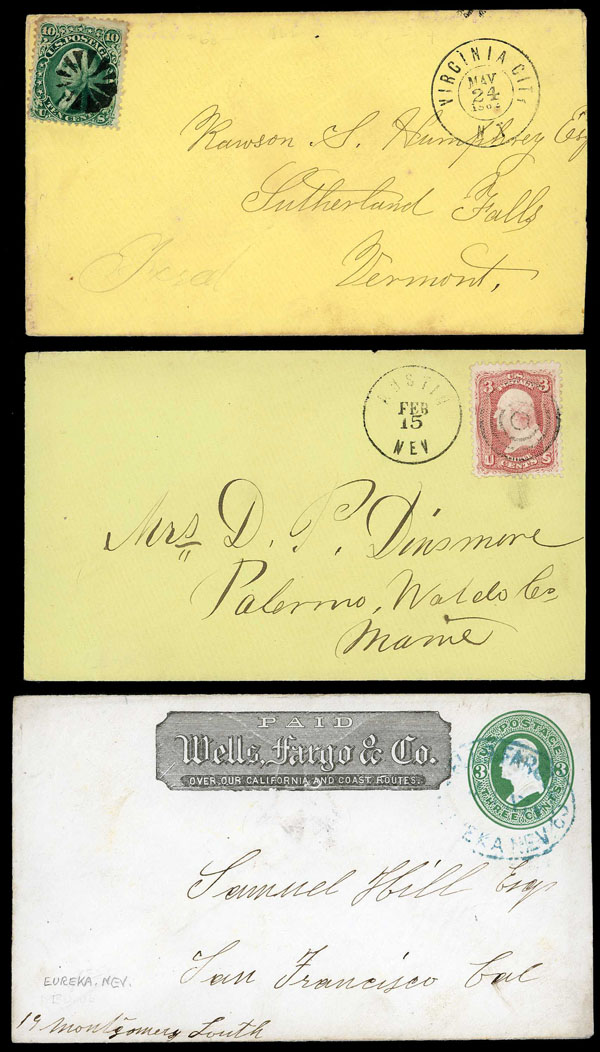 10 U.S. POSTAGE 10
TEN CENTS
VIRGINIA CITY
MAY
24
N T
Rawson S. Humphrey Esq
Sutherland Falls
Vermont,
Paid
AUSTIN
FEB
15
NEV
3 3
U CENTS S
Mrs D. P. Dinsmore
Palermo, Waldo Co
Maine
PAID
Wells, Fargo & Co.
OVER OUR CALIFORNIA AND COAST ROUTES.
U.S. POSTAGE
3 3
THREE CENTS
FARGO
EKA NEV
Samuel Hill Esq
San Francisco Cal
EUREKA. NEV.
19 Montgomery South